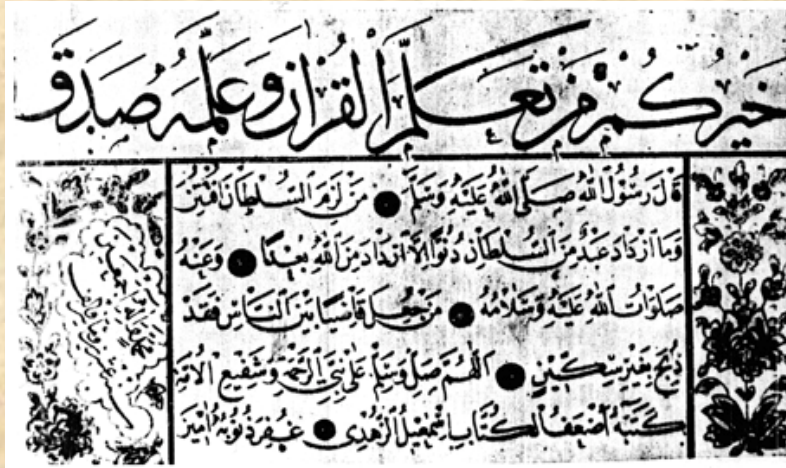 خَيْرُكُمْ مَنْ تَعَلَّمَ الْقُرْاٰنَ وَعَلَّمَهُ صُدِّقَ
قَالَ رَسُوْلُ اللهِ صَلَّى اللهُ عَلَيْهِ وَسَلَّمَ مَنْ لَزِمَ السُّلْطَانَ افْتُتِنَ
وَمَا ازْدَادَ عَبْدٌ مِنَ السُّلْطَانِ دُنُوًّا اِلَّا ازْدَادَ مِنَ اللهِ بُعْدًا وَعَنْهُ
صَلَوَاتُ اللهِ عَلَيْهِ وَسَلَامُهُ مَنْ جُعِلَ قَاضِيًا بَيْنَ النَّاسِ فَقَدْ
ذُبِحَ بِغَيْرِ سِكِّيْنٍ اَللّٰهُمَّ صَلِّ وَسَلِّمْ عَلٰى نَبِيِّ الرَّحْمَةِ وَشَفِيْعِ الْاُمَّةِ
كَتَبَهُ اَضْعَفُ الْكُتَّابِ اِسْمٰعِيْلُ الزُّهْدِيُّ غُفِرَ ذُنُوْبُهُ اٰمِيْنَ